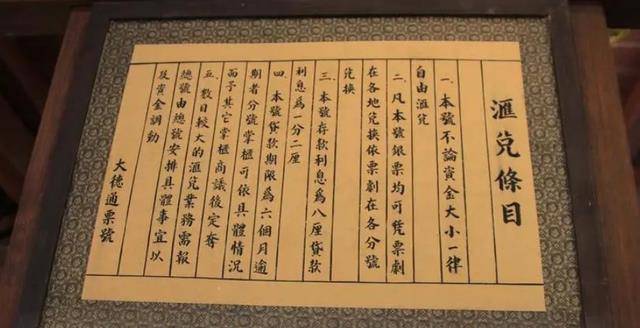 滙兌條目
一、本號不論資金大小一律
自由滙兌
二、凡本號銀票均可凭票劃
在各地兌換依票劃在各分號
兌换
三、本號存款利息爲八厘貸款
利息爲一分二厘
四、本號貸款期限爲六個月逾
期者分號掌櫃可依具體情况
而予其它掌櫃商議後定奪
五、數目較大的滙兌業務需報
總號由總號安排具體事宜以
及資金調動
大德通票號